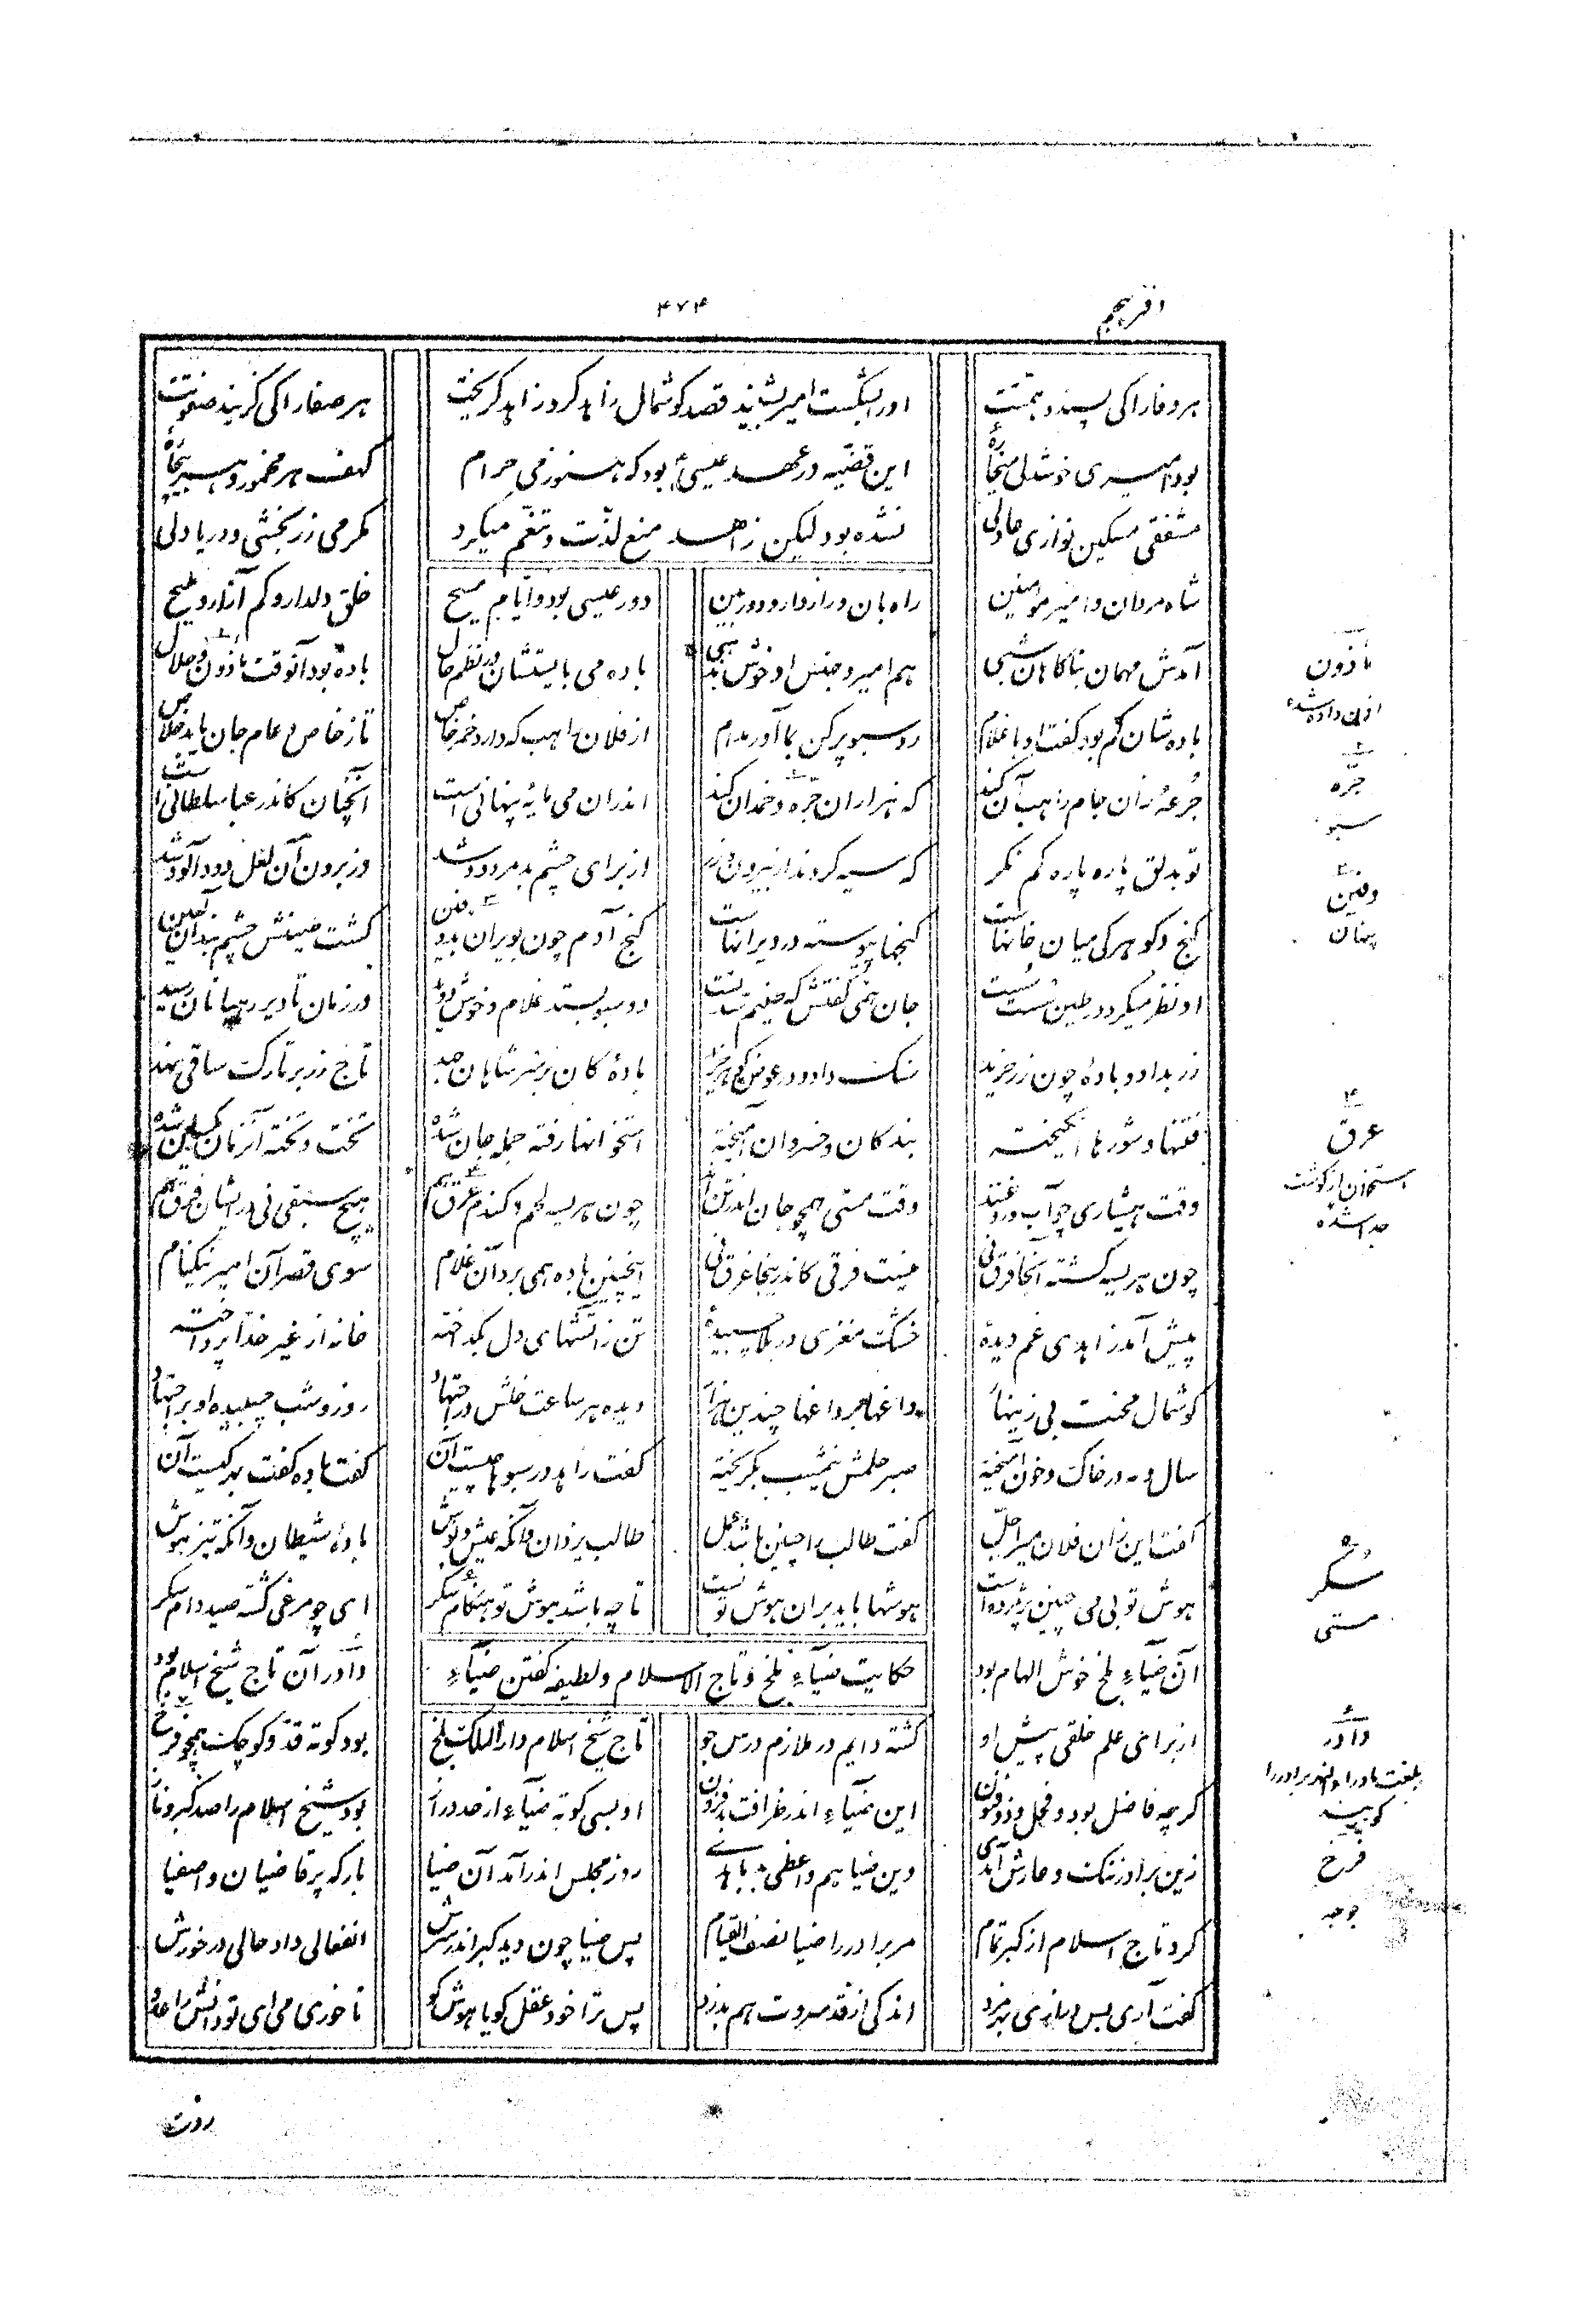 دفتر پنجم
۴۷۴
هر وفا را کی پسندد همتت
او را بشکست امیر بشنید قصد گوشمال زاهد کرد زاهد گریخت
هر صفا را کی گزیند صفوتت
بود امیری خوشدلی میخاره
این قضیه در عهد عیسی بود که هنوز می حرام
کهف هر مخمور و هر بیچاره
مشفقی مسکین نوازی عادلی
نشده بود لیکن زاهد منع لذّت و تنعّم میکرد
مکرمی زر بخشی و دریا دلی
شاه مردان و امیر مومنین
راه بان و رازدار و دوربین
دور عیسی بود و ایام مسیح
خلق دلدار و کم آزار و ملیح
آمدش مهمان بناگاهان شبی
هم امیر و جنس او خوش مذهبی
باده می بایستشان در نظم حال
باده بود آنوقت ماذون و حلال
باده شان کم بود گفت او با غلام
رو سبو پر کن بما آور مدام
از فلان راهب که دارد خمر خاص
تا ز خاص و عام جان یابد خلاص
جرعه زان جام راهب آن کند
که هزاران جرّه و خمدان کند
اندران می مایه پنهانی است
آنچنان کاندر عبا سلطانی است
تو بدلق پاره پاره کم نگر
که سیه کردند از بیرون زر
از برای چشم بد مردود شد
وز برون آن لعل دود آلود شد
گنج و گوهر کی میان خانهاست
گنجها پیوسته در ویرانهاست
گنج آدم چون بویران بد دفین
گشت طینش چشم بند آن لعین
او نظر میکرد در طین سست سست
جان همی گفتش که طینم سد تست
دو سبو بستد غلام و خوش دوید
در زمان تا دیر رهبانان رسید
زر بداد و باده چون زر خرید
سنگ داد و در عوض گوهر خرید
بادهٔ کان بر سر شاهان جهد
تاج زر بر تارک ساقی نهد
فتنها و شورها انگیخته
بندگان و خسروان آمیخته
استخوانها رفته جمله جان شده
تخت و تخته آنزمان یکسان شده
وقت هشیاری چو آب و روغنند
وقت مستی همچو جان اندر تنند
چون هریسه لحم و گندم غرق هم
هیچ سبقی نی در ایشان فرق هم
چون هریسه گشته آنجا فرق نی
نیست فرقی کاندر اینجا غرق نی
اینچنین باده همی برد آن غلام
سوی قصر آن امیر نیکنام
پیش آمد زاهدی غم دیده
خشک مغزی در بلا پیچیده
تن ز آتشهای دل بگداخته
خانه از غیر خدا پرداخته
گوشمال محنت بی زینهار
داغها بر داغها چندین هزار
دیده هر ساعت خلش در اجتهاد
روز و شب چسبیده او بر اجتهاد
سال و مه در خاک و خون آمیخته
صبر حلمش نیمشب بگریخته
گفت زاهد در سبوها چیست آن
گفت باده گفت بهر کیست آن
گفت این زان فلان میر اجلّ
گفت طالب را چنین باشد عمل
طالب یزدان وانگه عیش و نوش
بادهٔ شیطان وانگه تیز هوش
هوش تو بی می چنین پژمرده است
هوشها باید بران هوش تو بست
تا چه باشد هوش تو هنگام سکر
ای چو مرغی گشته صید دام سکر
حکایت ضیاءِ بلخ و تاج الاسلام و لطیفه گفتن ضیاءِ
آن ضیاءِ بلخ خوش الهام بود
دادر آن تاج شیخ اسلام بود
از برای علم خلقی پیش او
گشته دایم در ملازم درس جو
تاج شیخ اسلام دار الملک بلخ
بود کوته قد و کوچک همچو فرخ
گرچه فاضل بود و فحل و ذوفنون
این ضیاءِ اندر ظرافت بد فزون
او بسی کوته ضیاءِ از حد دراز
بود شیخ اسلام را صد کبر و ناز
زین برادر ننگ و عارش آمدی
وین ضیا هم واعظی بد با هدی
روز مجلس اندر آمد آن ضیا
بارگه پر قاضیان و اصفیا
کرد تاج اسلام از کبر تمام
مر برادر را ضیا نصف القیام
پس ضیا چون دید کبر اندر سرش
انفعالی داد حالی در خورش
گفت آری بس درازی بهر مزد
اندکی از قد سروت هم بدزد
پس ترا خود عقل کو یا هوش کو
تا خوری می ای تو دانش را عدو
ماذون
اذن داده شده
جرّه
سبو
دفین
پنهان
عرق
استخوان از گوشت
جدا شده
سُکر
مستی
دادر
بلغت ماوراءالنهر برادر را
گویند
فرخ
جوجه